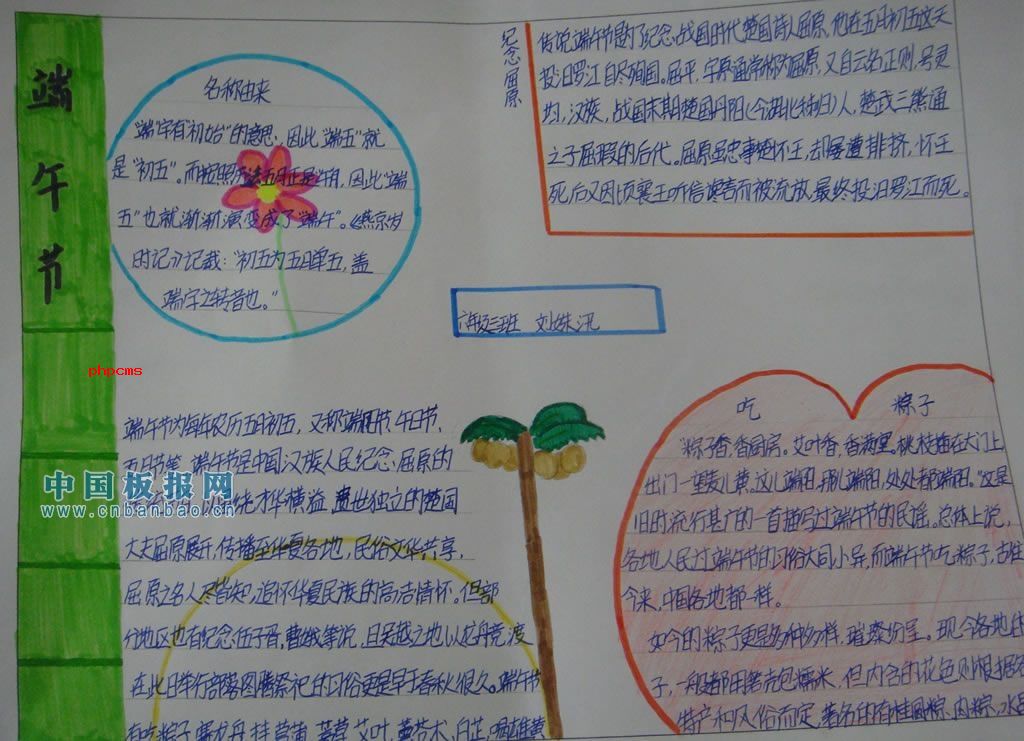 端
午
节
名称由来
"端"字有"初始"的意思,因此"端五"就
是"初五"。而按照历法五月正是午月,因此"端
五"也就渐渐演变成了"端午"。《燕京岁
时记》记载:"初五为五月单五,盖
端字之转音也。"
纪念屈原
传说端午节是为了纪念战国时代楚国诗人屈原,他在五月初五这天
投汨罗江自尽殉国。屈平,字原通常称为屈原,又自云名正则,号灵
均,汉族,战国末期楚国丹阳(今湖北秭归)人,楚武王熊通
之子屈瑕的后代。屈原虽忠事楚怀王,却屡遭排挤,怀王
死后又因顷襄王听信谗言而被流放,最终投汨罗江而死。
六年级三班 刘姝汛
phpcms
端午节为每年农历五月初五,又称端阳节、午日节、
五月节等。端午节是中国汉族人民纪念屈原的
才华横溢、遗世独立的楚国
大夫屈原展开,传播至华夏各地,民俗文华共享,
屈原之名人尽皆知,追怀华夏民族的高洁情怀。但部
分地区也有纪念伍子胥、曹娥等说,且吴越之地以龙舟竞渡
在此日举行部落图腾祭祀的习俗更是早于春秋很久。端午节
有吃粽子,赛龙舟,挂菖蒲、艾叶,薰苍术、白芷,喝雄黄
中国板报网
www.cnbanbao.cn
吃 粽子
"粽子香,香厨房。艾叶香,香满堂。桃枝插在大门上,
出门一望麦儿黄。这儿端阳,那儿端阳,处处都端阳。"这是
旧时流行甚广的一首描写过端午节的民谣。总体上说,
各地人民过端午节的习俗大同小异,而端午节吃粽子,古往
今来,中国各地都一样。
如今的粽子更是多种多样,璀璨纷呈。现今各地的
子,一般都用箬壳包糯米,但内含的花色则根据各
特产和风俗而定,著名的有桂圆粽、肉粽、水晶